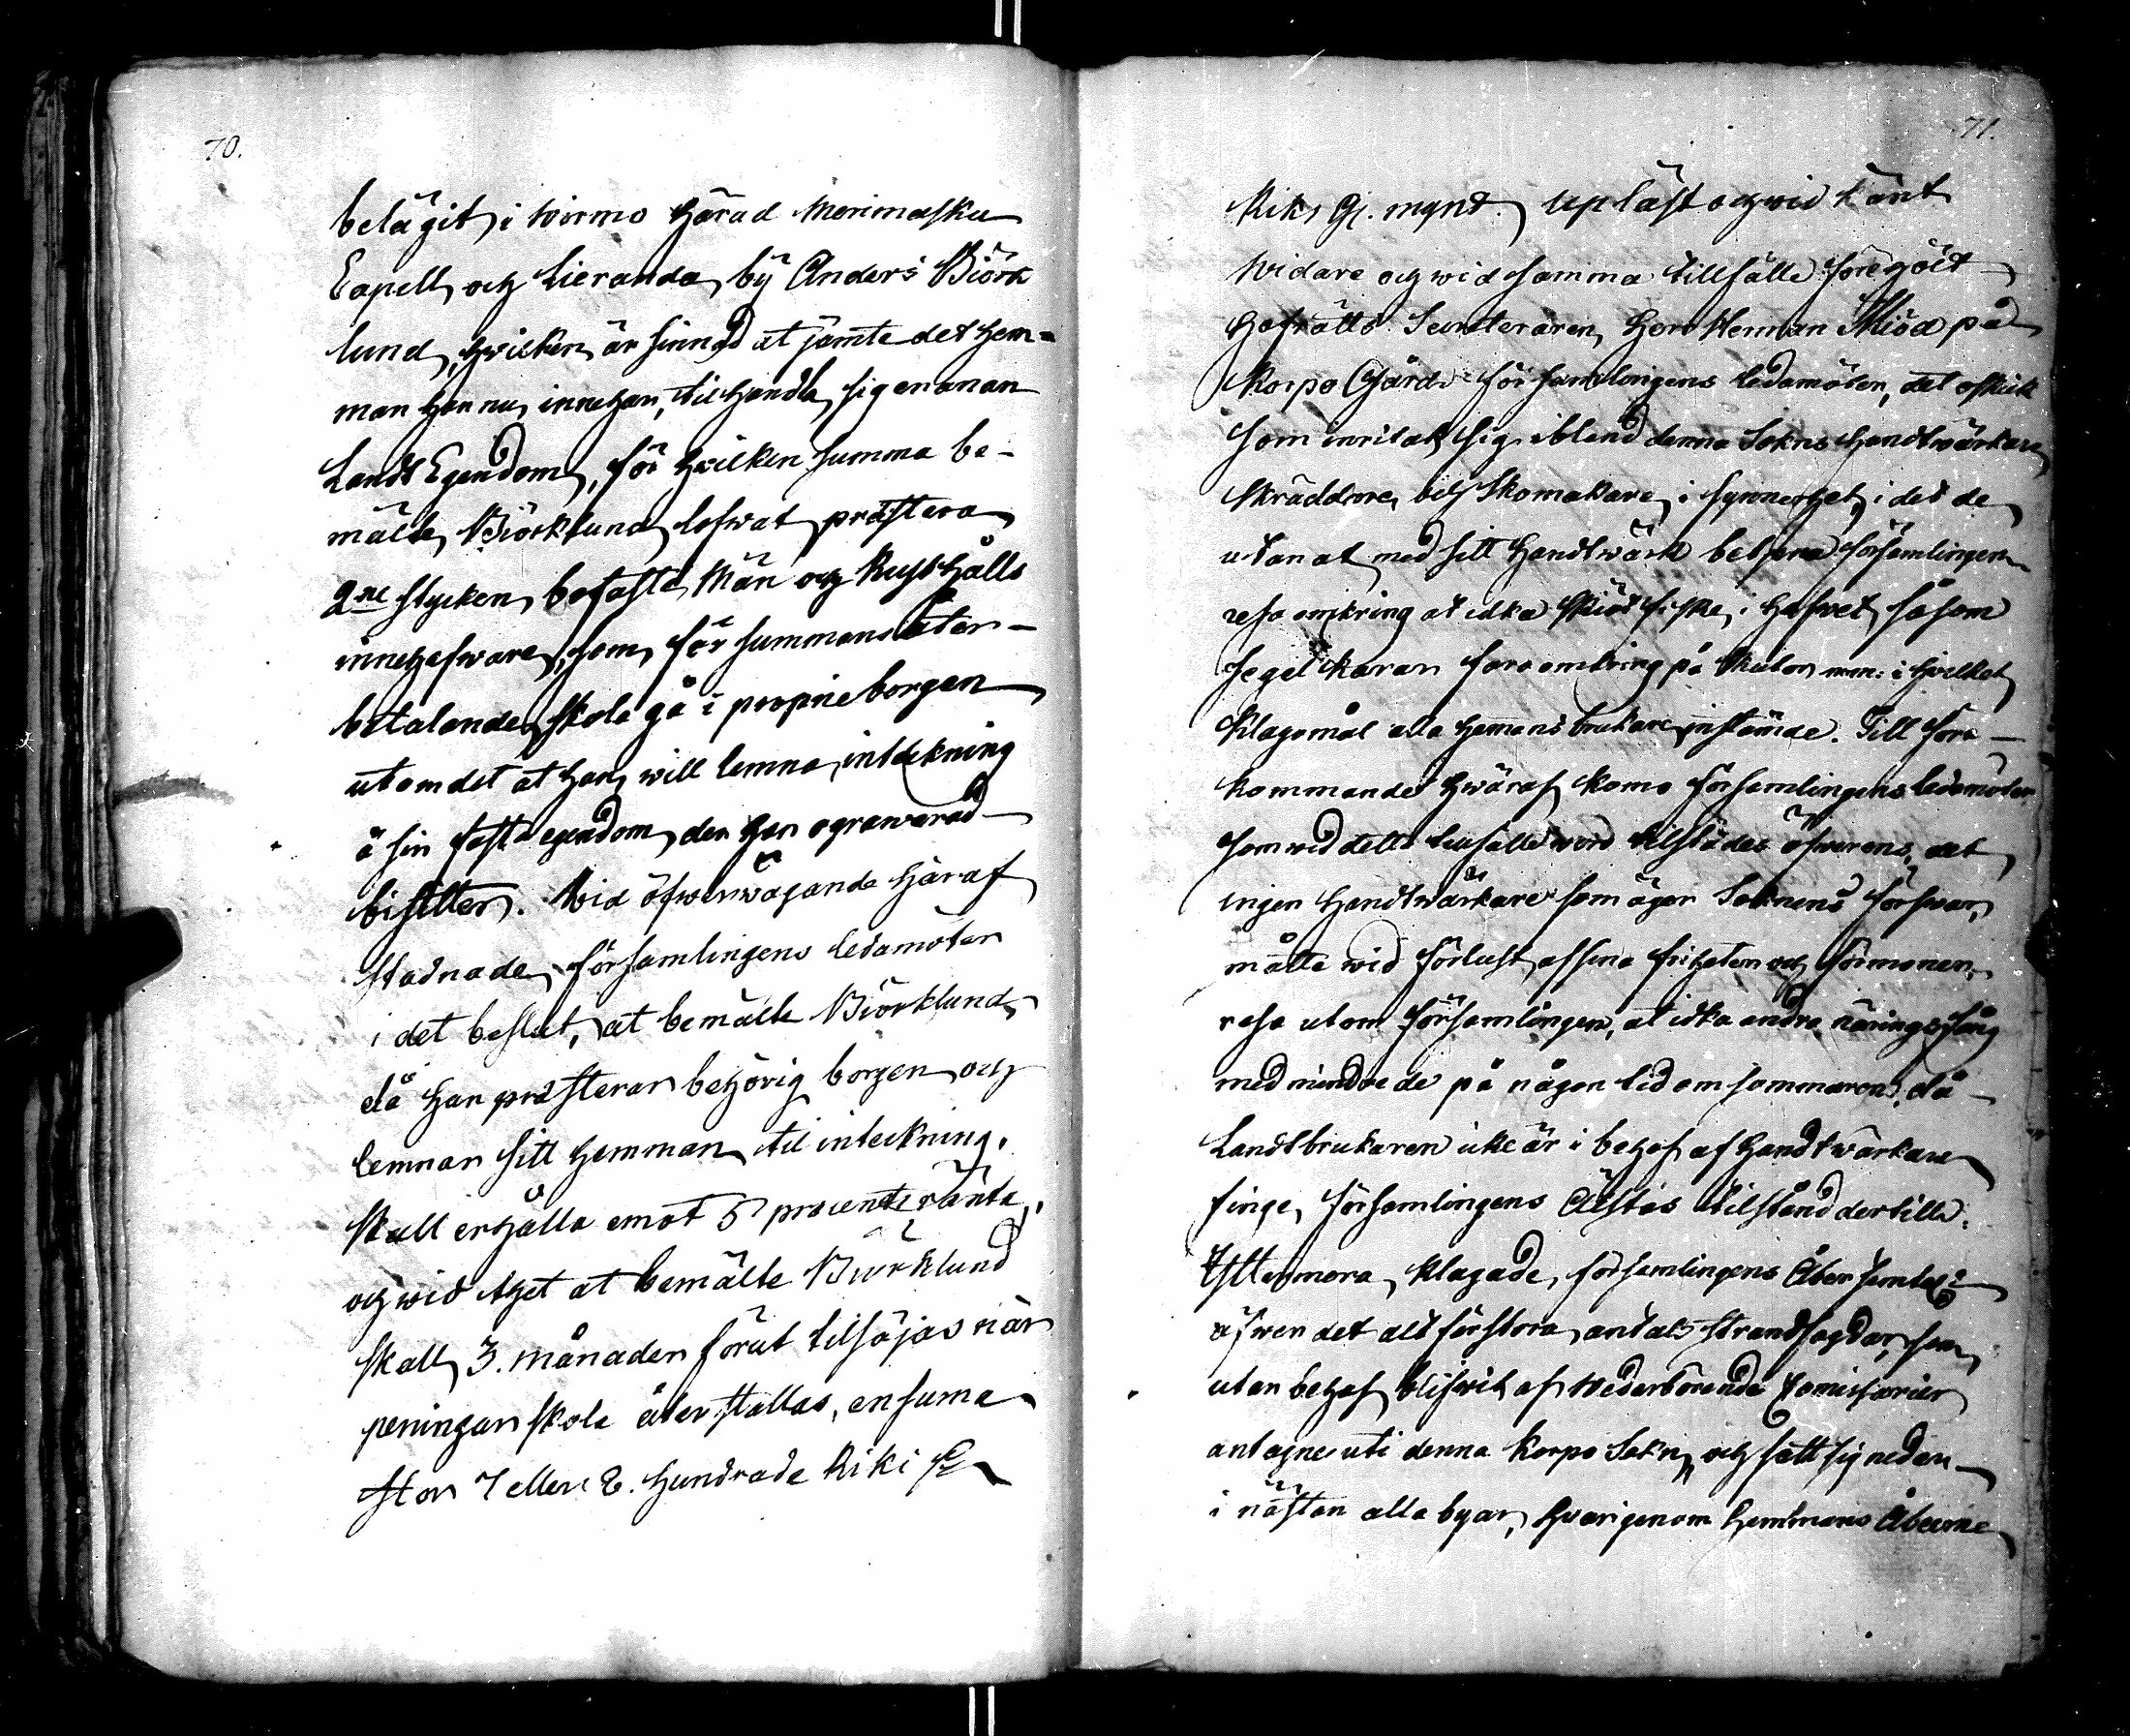 70.
belägit i Wirmo Härad Merimasku
Capell och Lieranda by Anders Biörk
lund, hwilken är sinnad at jämte det hem=
man han nu innehar, tilhandla sig en anan
Landt Egendom, för hwilken summa be-
mälte Biörklund lofwat præstera
2ne stycken bofaste Män och Rusthålls
innehafware, som för summans åter-
betalande skola gå i proprie borgen
utom det at han will lemna inteckning
å sin fasta egendom, den han ograwerad
besitter. Wid öfwerwägande häraf
stadnade församlingens ledamöter
i det beslut, at bemälte Biörklund
då han præsterar behörig borgen och
lemnar sitt hemman til inteckning,
skall erhålla emot 5 procents ränta,
och wid thet at bemälte Biörklund
skall 3. månader förut tilsäjas när
peningar skola återställas, en suma
stor 7 eller 8. hundrade Riks
71.
Riks Gj. mynt. Upläst och wid känt
Widare och wid samma tillfälle föregaf
Hofrätts Secreteraren Herr Herman på
Korpo Gård för församlingens ledamöter, det oskick
som inritat sig ibland denna Sokns Handtwärkare
Skräddare och Skomakare i synnerhet, i det de
utan at med sitt Handtwärk betjena församlingen
resa omkring at idka Skiöt fiske i hafwet, såsom
Segel karar fara omkring på Skutor m.m. i hwilket
Klagomål alla hemans brukare instämde. Till före-
kommande hwaraf komo församlingens ledamöter
som wid detta tillfälle woro tilstädes öfwerens, det
ingen Handtwärkare som äger Soknens försvar,
måtte wid förlust af sina friheter och förmoner,
resa utom församlingen, at idka andra näringsfång
med mindre de på någon tid om sommaren, då
Landtbrukaren icke är i behof af Handtwärkare
finge församlingens tilstånd dertill.
Yttermera klagade församlingens Åboer samtel:
öfwer det alt för stora antal Strandfogdar, som
utan behof blifwit af Wederbörande Comissarier
antagne uti denna Korpo Sokn, och satt sig neder
i nästan alla byar, hwarigenom hemmans Åboerne